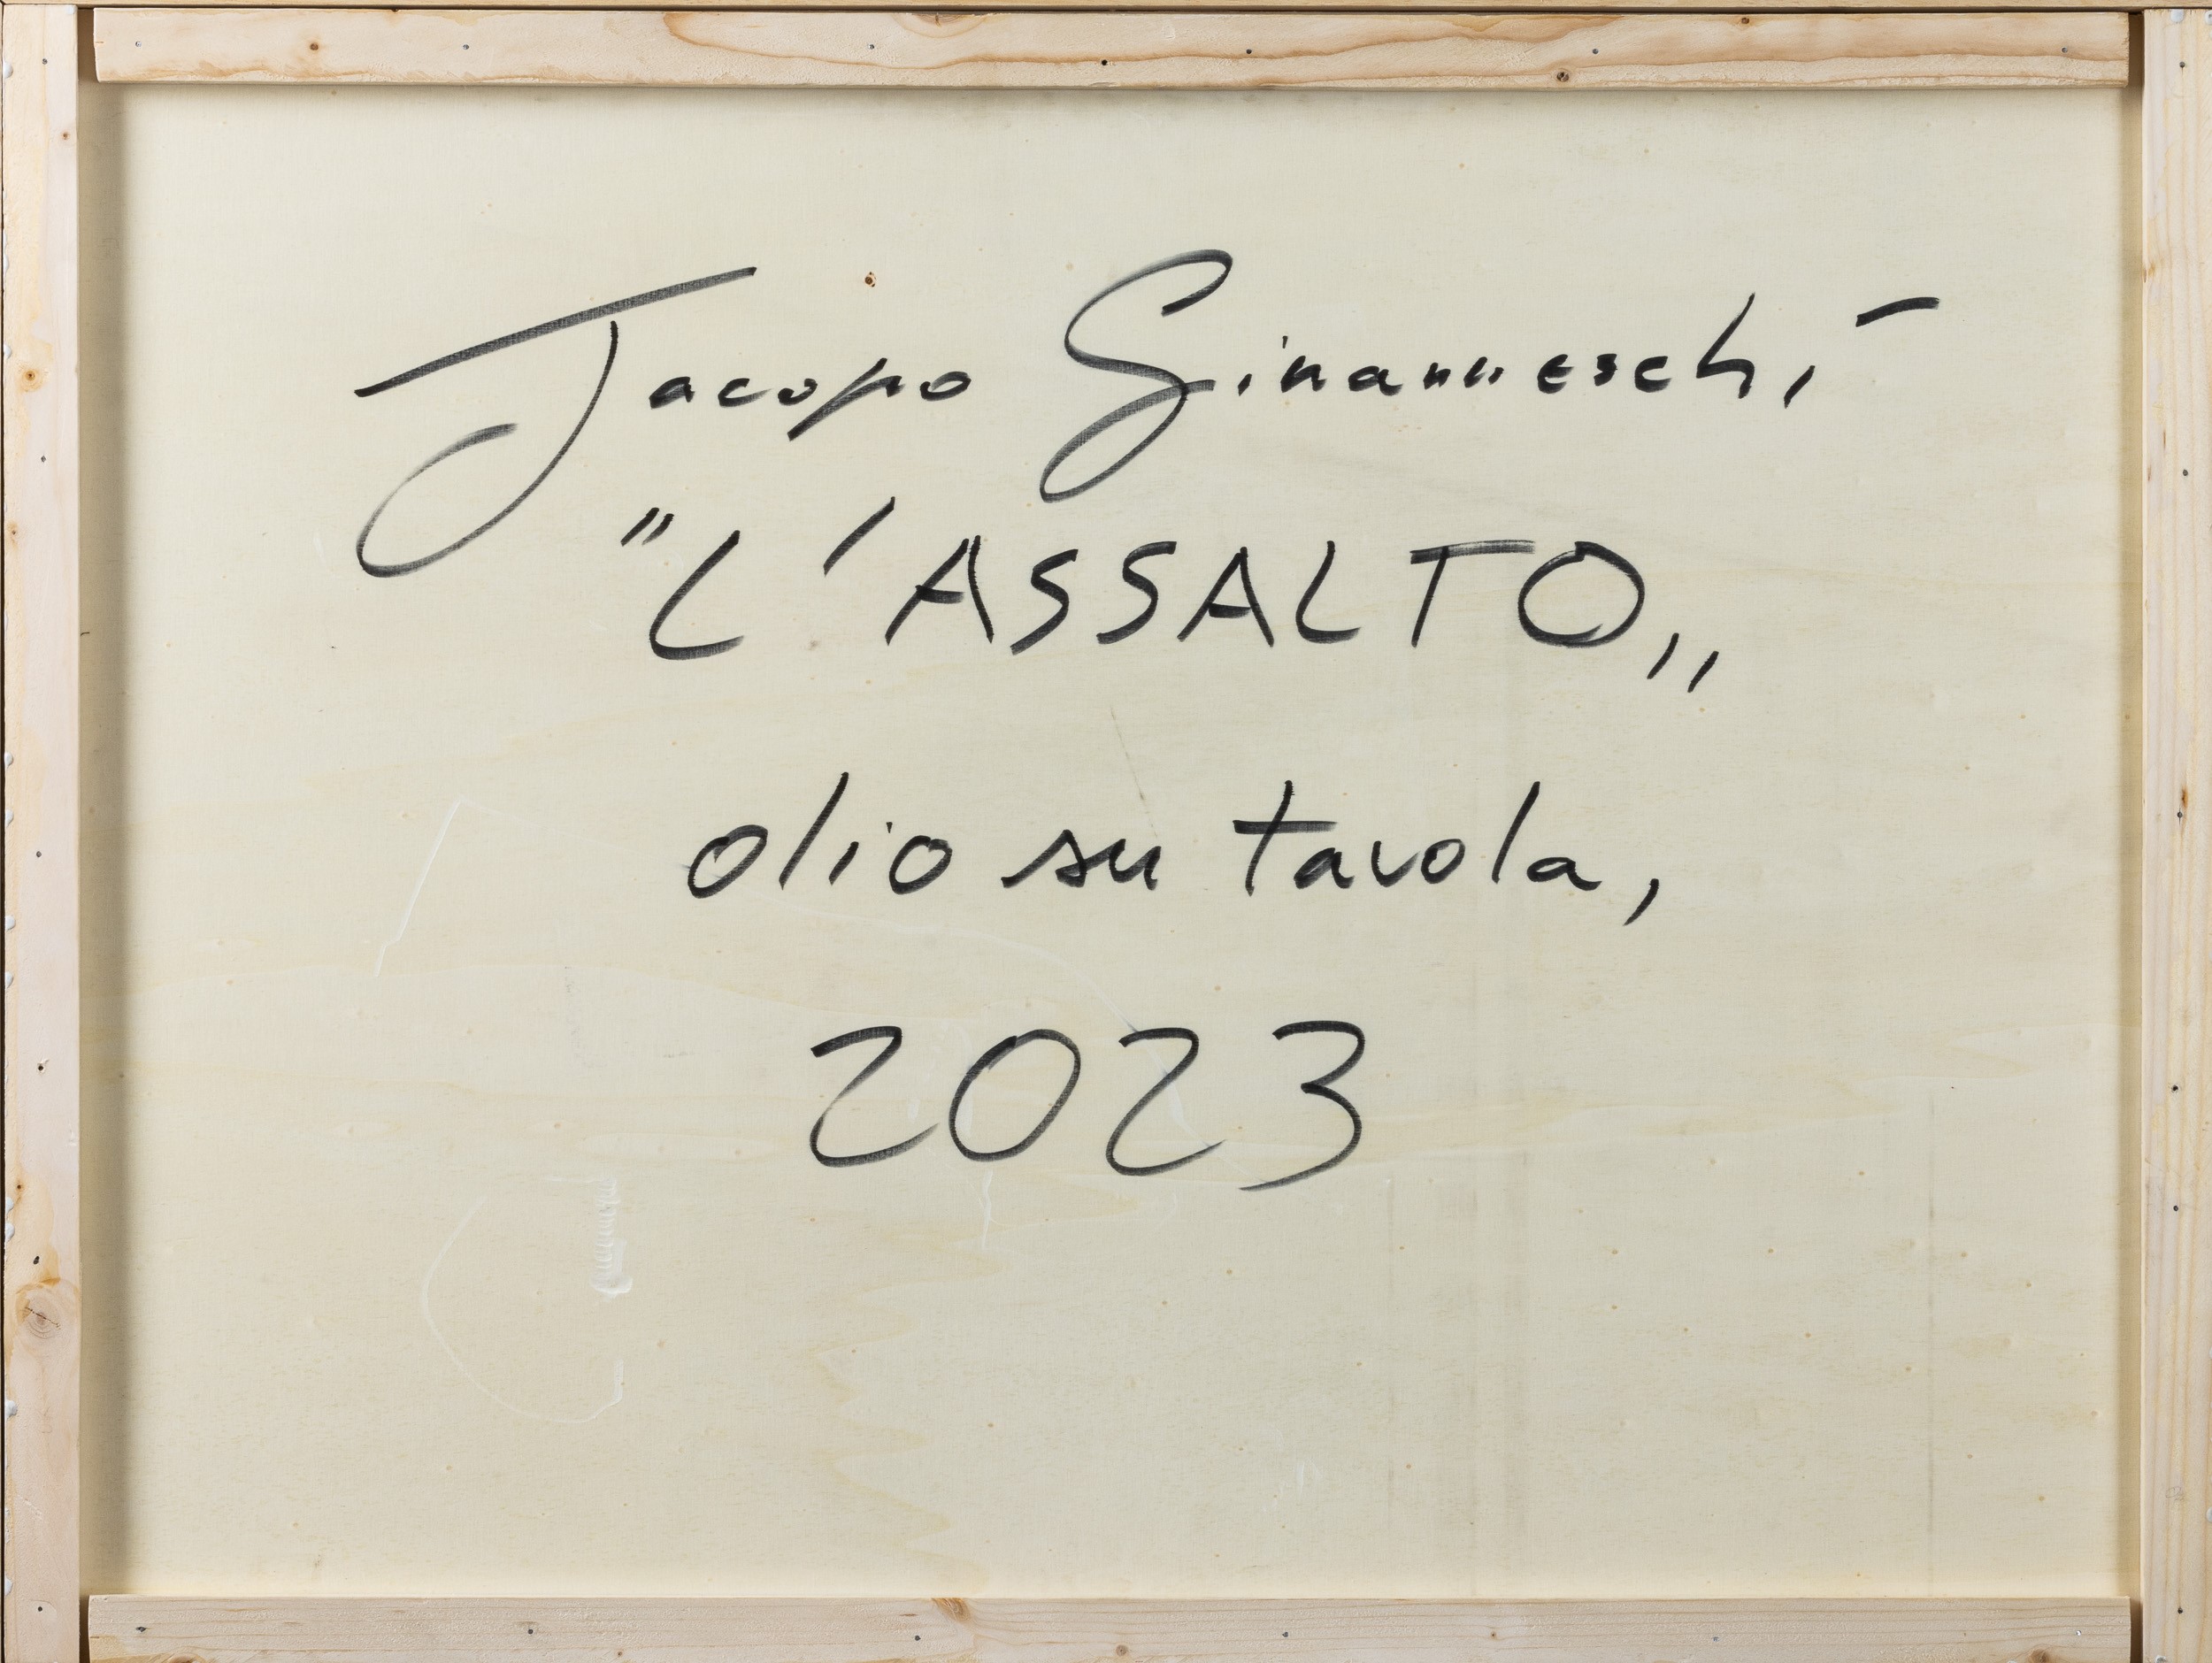 Jacopo Ginanneschi
"L'ASSALTO„
olio su tavola,
2023